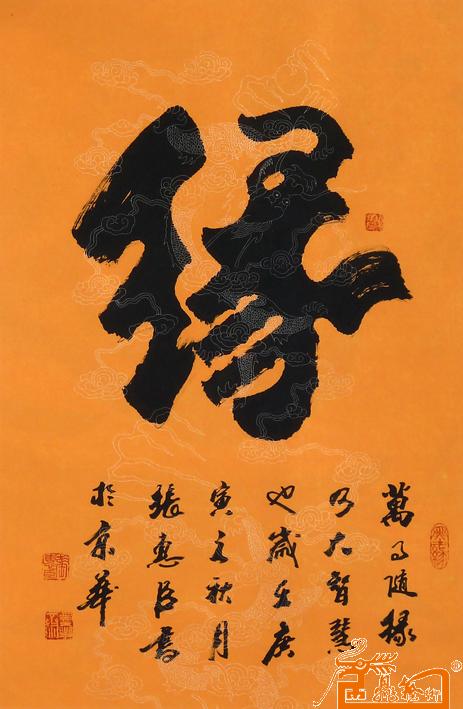 缘
萬事随緣
乃大智慧
也歲在庚
寅之秋月
張惠臣書
於京華